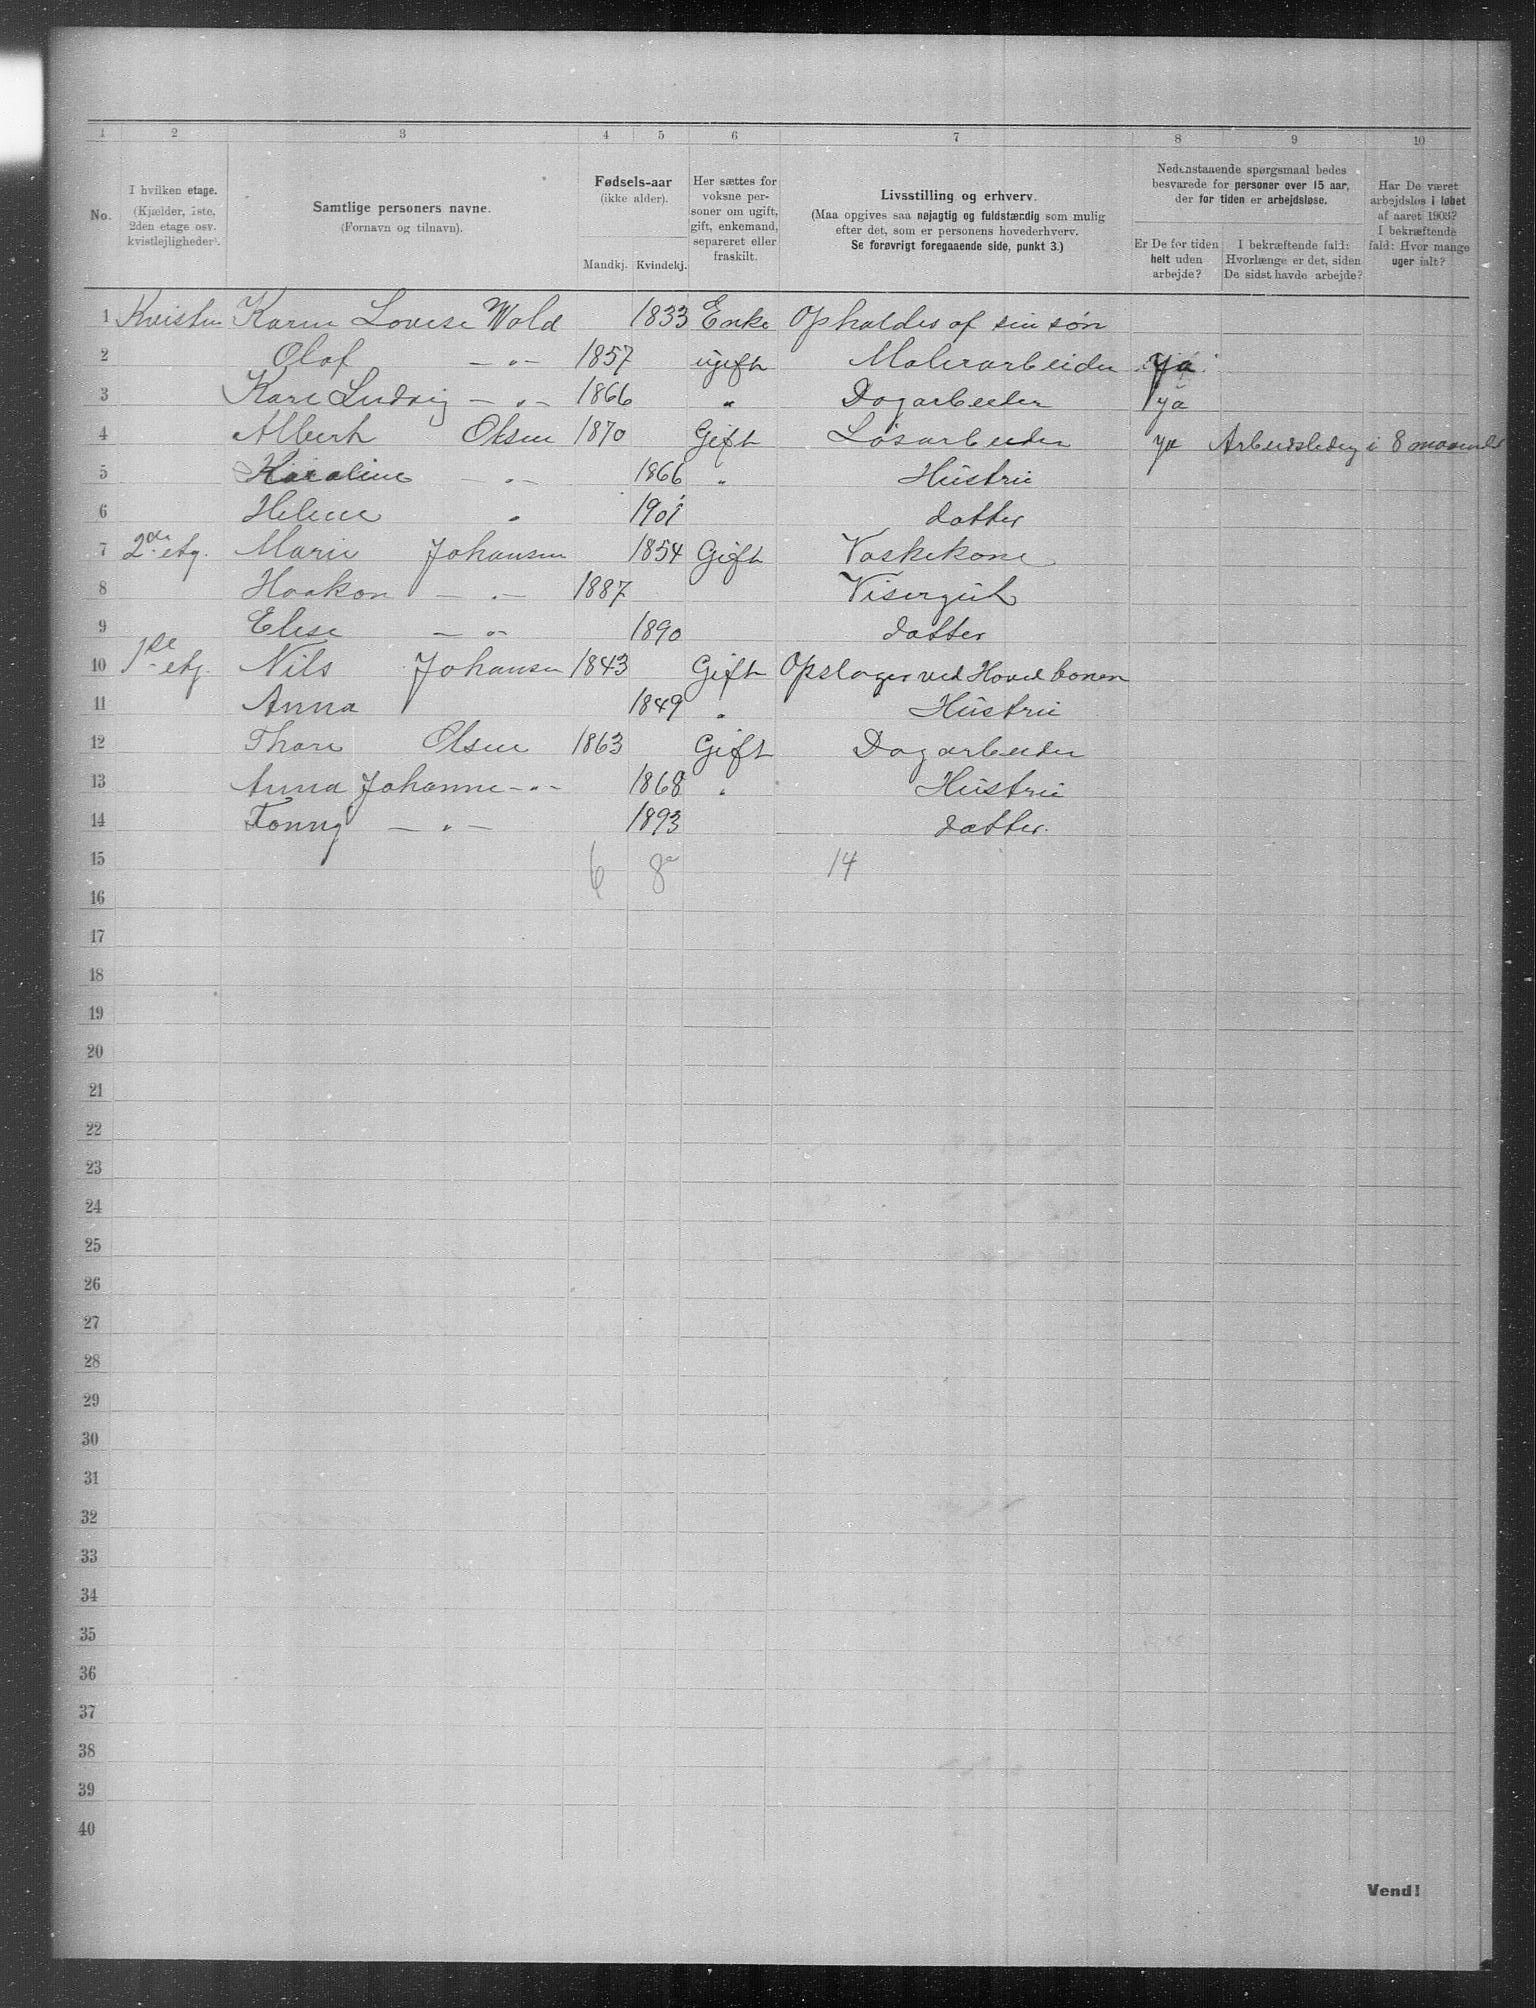 1 2 3 4 5 6 7 8 9 10
No.
I hvilken etage. (Kjælder, 1ste, 2den etage osv. kvistlejligheder).
Samtlige personers navne. (Fornavn og tilnavn).
Fødsels-aar (ikke alder). Mandkj. Kvindekj.
Her sættes for voksne personer om ugift, gift, enkemand, separeret eller fraskilt.
Livsstilling og erhverv. (Maa opgives saa nøjagtig og fuldstændig som mulig efter det, som er personens hovederhverv. Se forøvrigt foregaaende side, punkt 3.)
Nedenstaaende spørgsmaal bedes besvarede for personer over 15 aar, der for tiden er arbejdsløse.
Er De for tiden helt uden arbejde?
I bekræftende fald: Hvorlænge er det, siden De sidst havde arbejde?
Har De været arbejdsløs i løbet af aaret 1903? I bekræftende fald: Hvor mange uger ialt?
1 Kvisten Karen Lovise Wold 1833 Enke Opholdes af sin søn
2 Olaf — " — 1857 ugift Malerarbeider Ja
3 Karl Ludvig — " — 1866 " Dagarbeider ja
4 Albert Olsen 1870 Gift Løsarbeider ja Arbeidsledig i 8 maaneder
5 Karoline — " — 1866 " Hustrue
6 Helene " 1901 datter
7 2de etg. Marie Johansen 1854 Gift Vaskekone
8 Haakon — " — 1887 Visergut
9 Elise — " — 1890 datter
10 1ste etg. Nils Johansen 1843 Gift Opslager ved Hovedbanen
11 Anna 1849 " Hustrue
12 Thore Olsen 1863 Gift Dagarbeider
13 Anna Johanne — " — 1868 " Hustrue
14 Fanny — " — 1893 datter.
15 6 8 14
16
17
18
19
20
21
22
23
24
25
26
27
28
29
30
31
32
33
34
35
36
37
38
39
40
Vend!